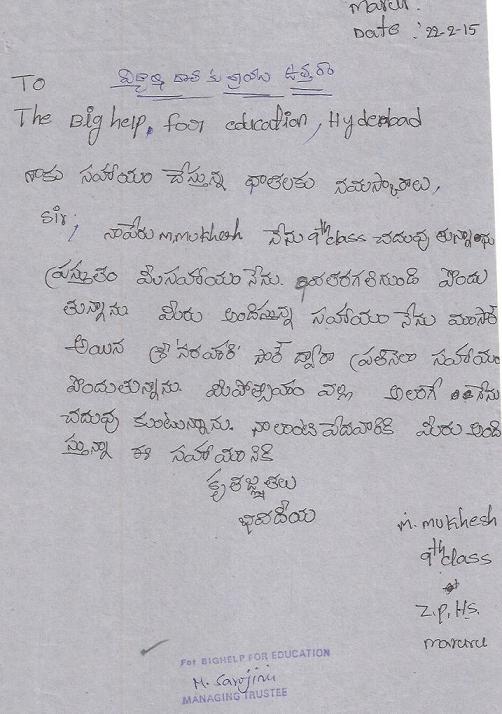 maruru.
Date : 22-2-15
విద్యార్థి దాతకు వ్రాయు ఉత్తరం
TO
The Big help, for education, Hyderabad
నాకు సహాయం చేస్తున్న దాతలకు నమస్కారాలు,
Sir, నాపేరు m.mukhesh నేను 9th class చదువుతున్నాను
ప్రస్తుతం మీ సహాయం నేను తరగతినుండి పొందు
తున్నాను మీరు అందిస్తున్న సహాయం నేను మా సార్
అయిన శ్రీ నరహరి సార్ ద్వారా ప్రతినెలా సహాయం
పొందుతున్నాను. మీ ప్రోత్సాహం వల్ల అలాగే నేను
చదువు కుంటున్నాను. నాలాంటి పేదవారికి మీరు అంది
స్తున్నా ఈ సహాయానికి
కృతజ్ఞతలు
భవదీయ
M. mukhesh
9th class
Z.P.H.S.
maruru
For BIGHELP FOR EDUCATION
M. Sarojini
MANAGING TRUSTEE